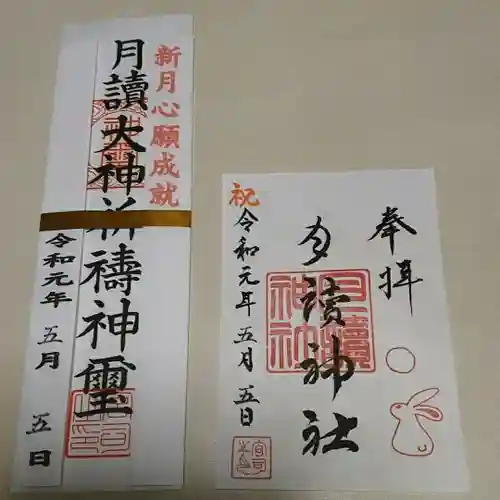 新月心願成就
月讀大神祈禱神璽
令和元年 五月 五日
奉拝
月読神社
祝
令和元年五月五日